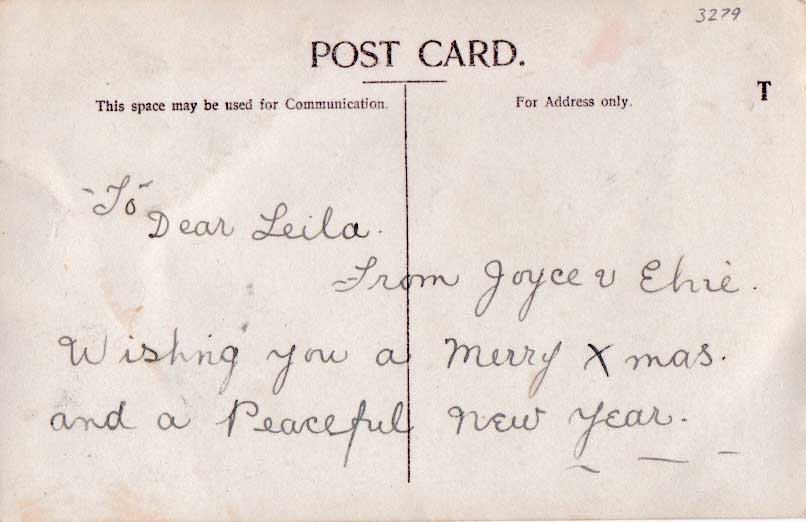 3279
POST CARD.
This space may be used for Communication.
For Address only.
T
To
Dear Leila.
From Joyce &
Wishing you a Merry Xmas.
and a Peaceful New Year.